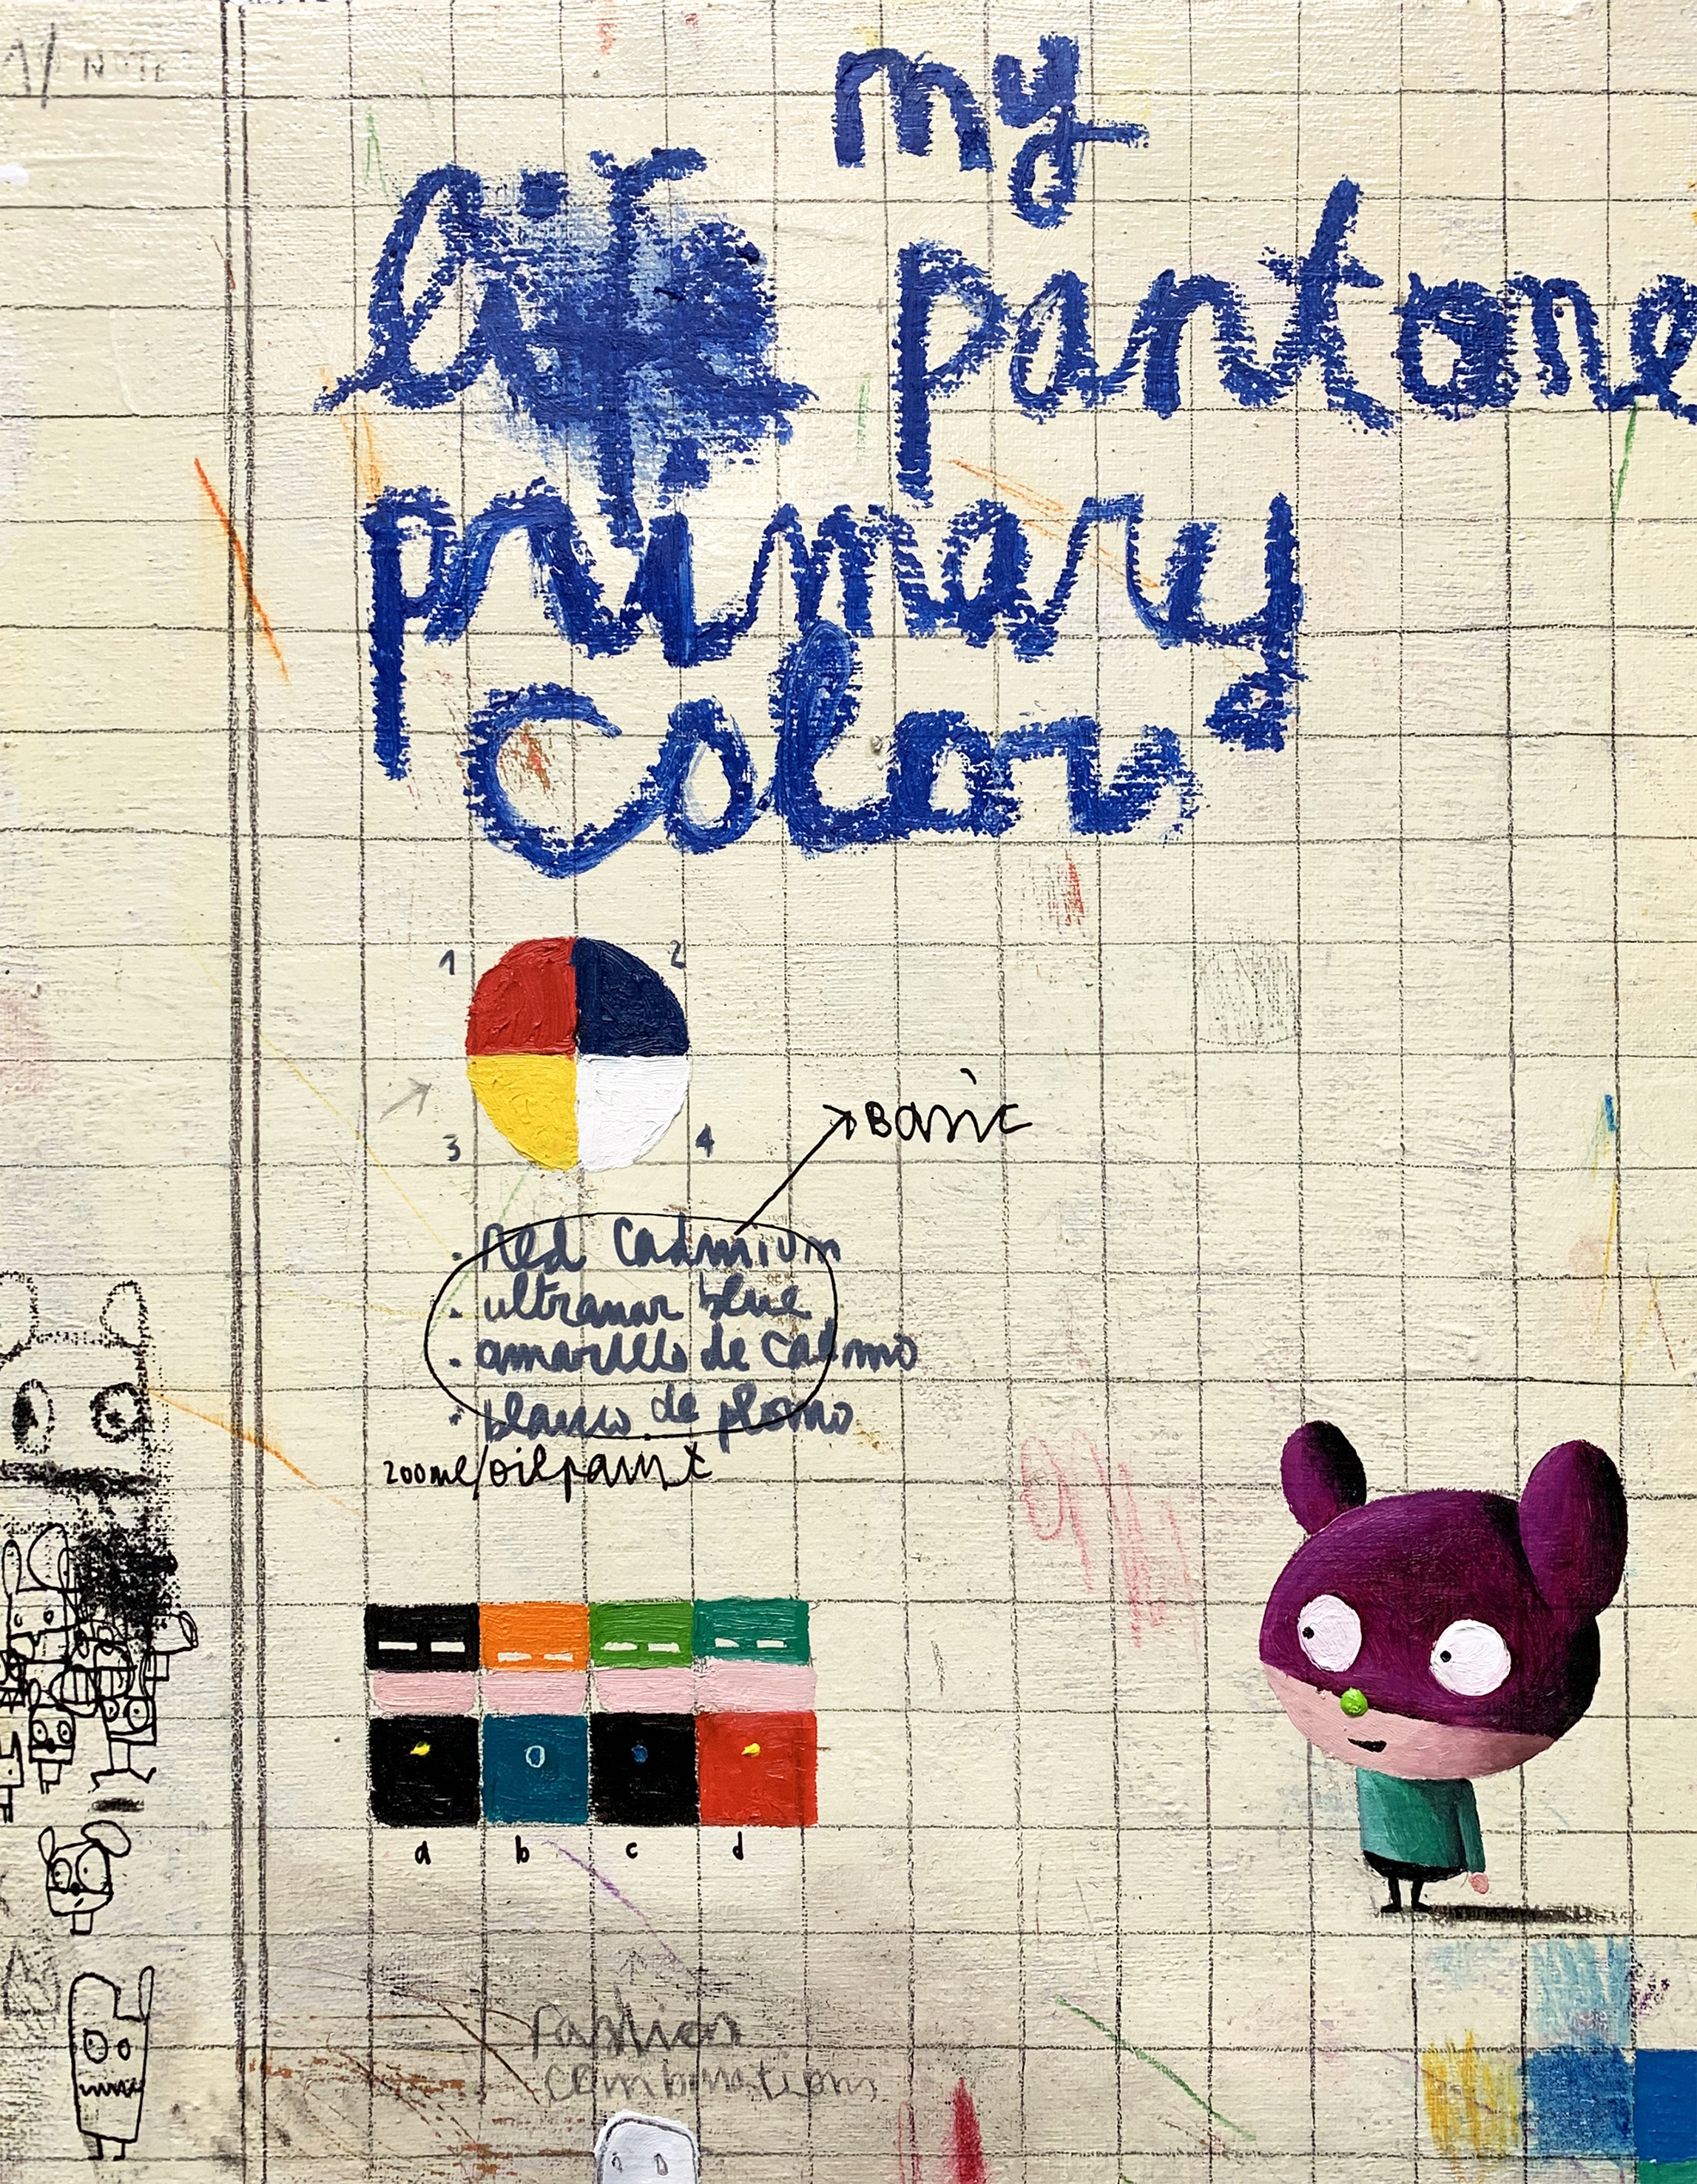 NOTE
my
life pantone
primary
colors
1 2
3 4
Basic
. Red Cadmium
. ultramar blue
. amarillo de cadmio
. blanco de plomo
200ml/oilpaint
a b c d
fashion
combinations